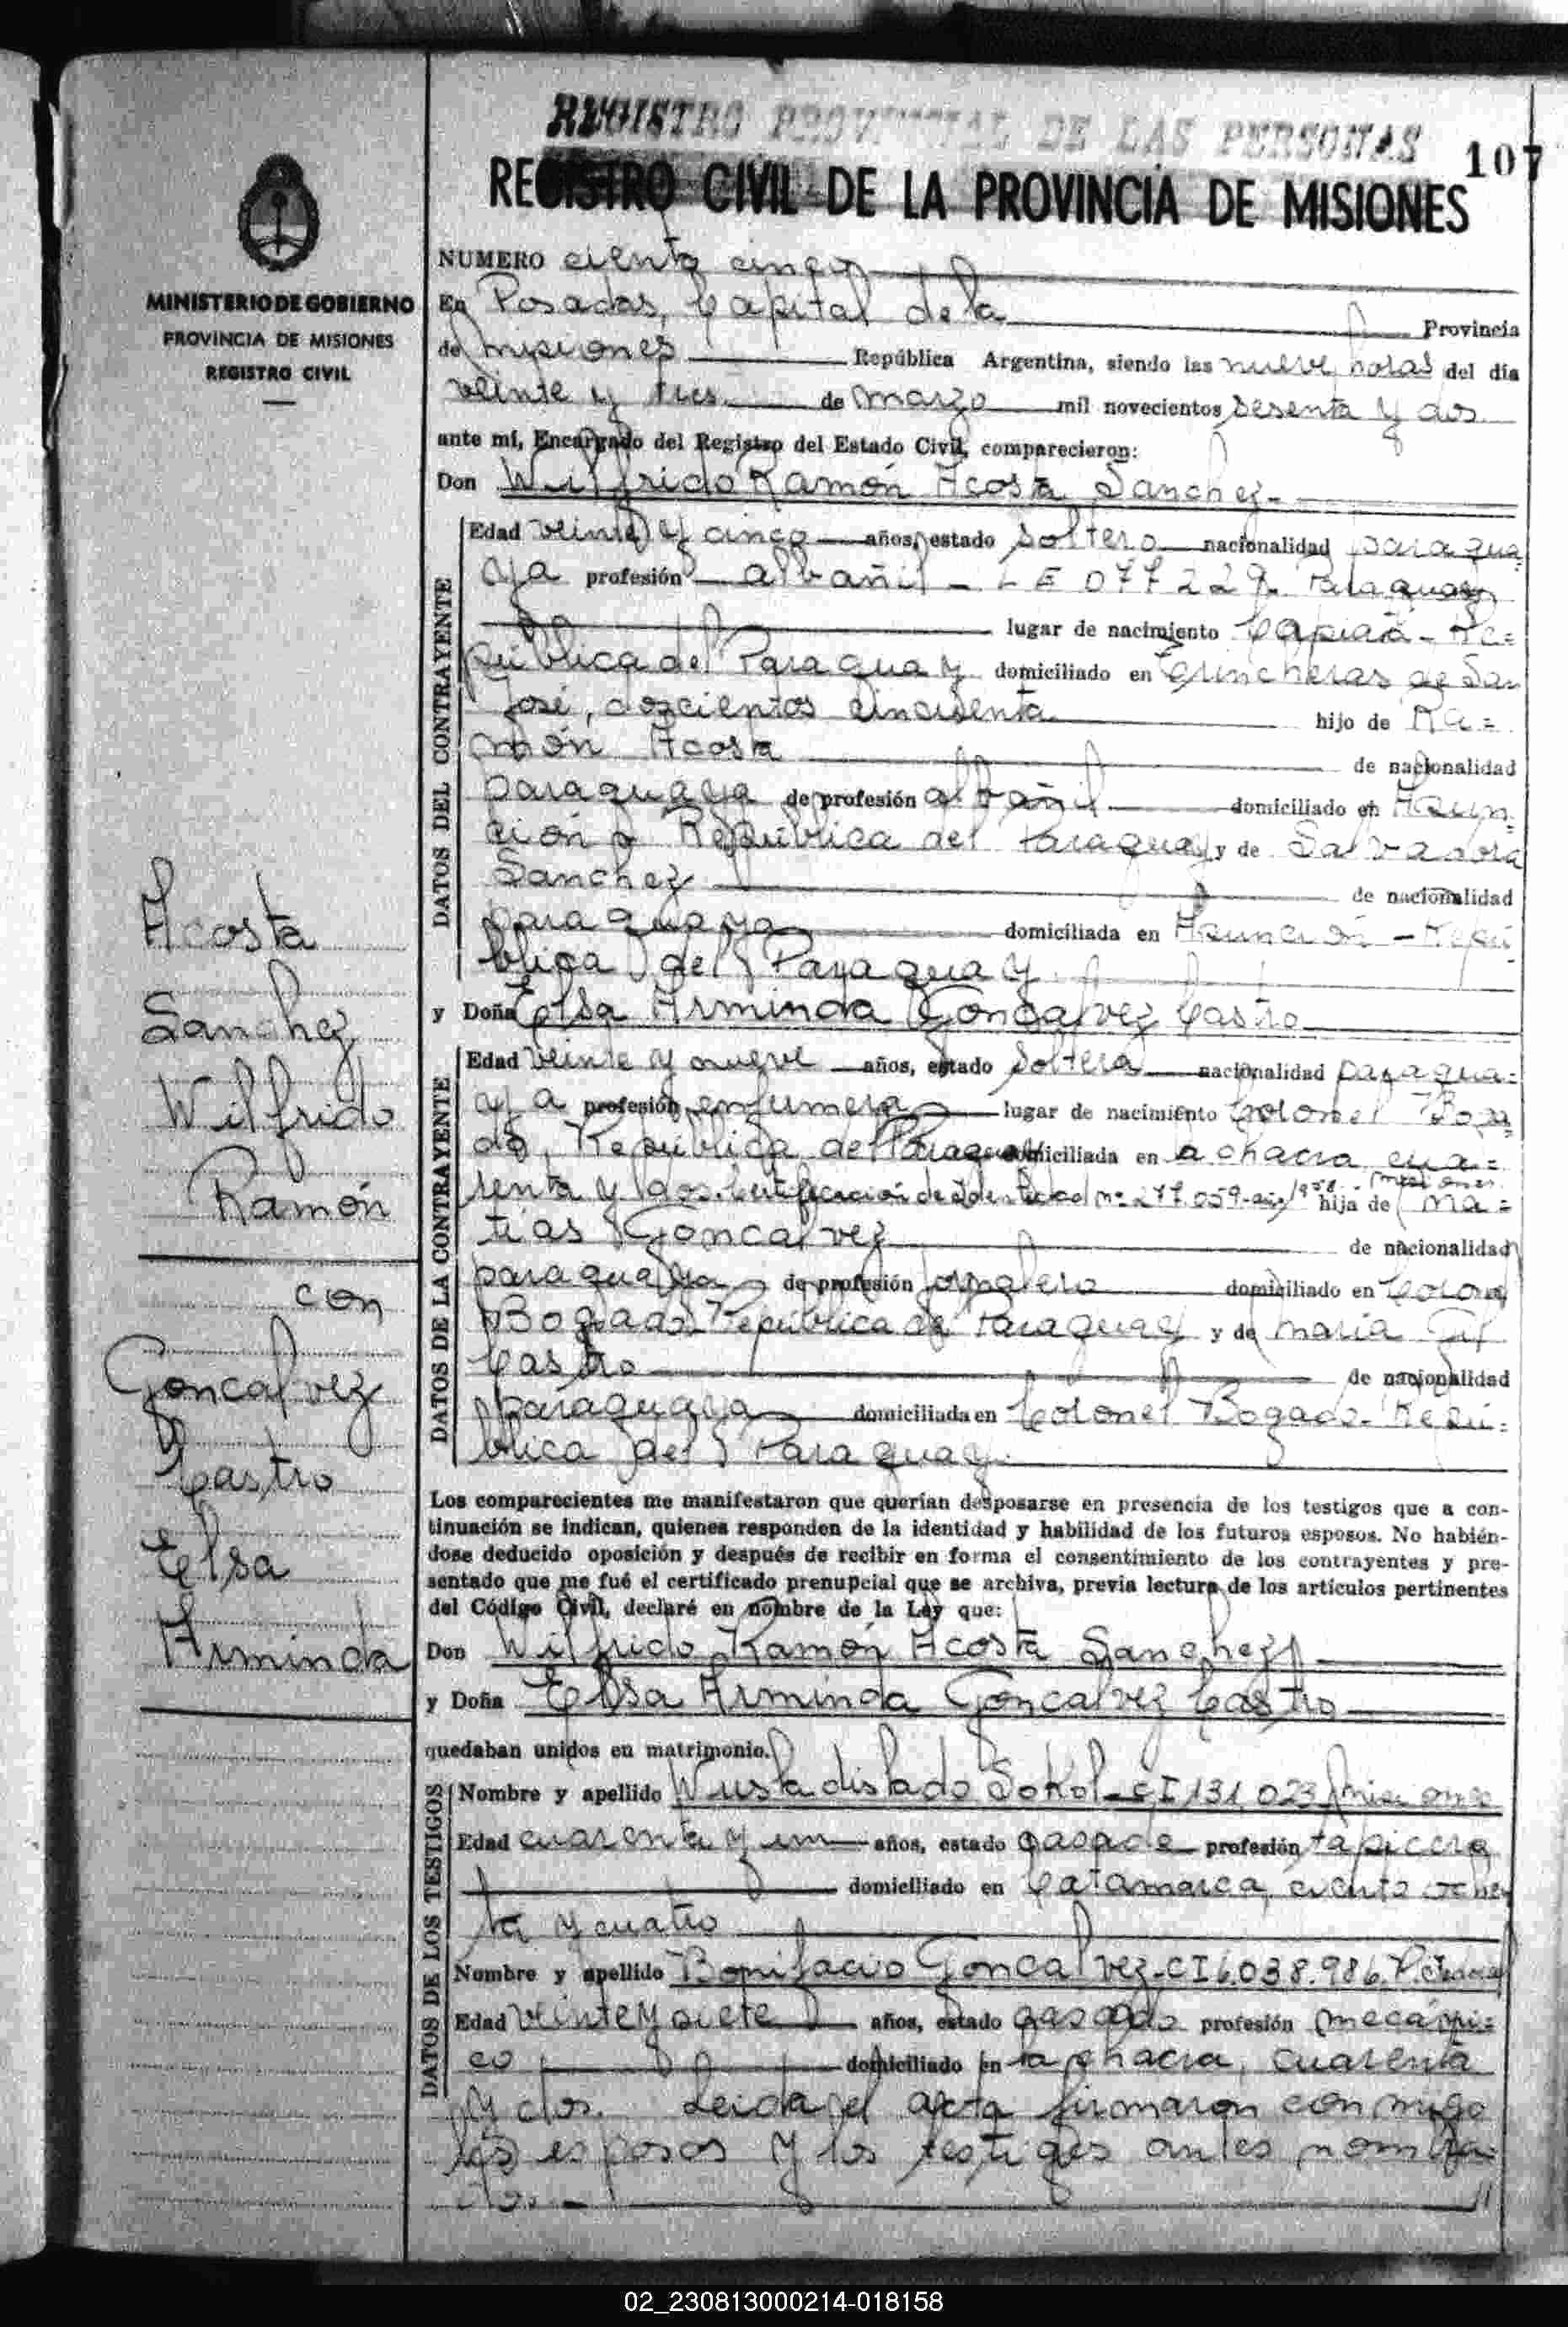 REGISTRO PROVINCIAL DE LAS PERSONAS
107
REGISTRO CIVIL DE LA PROVINCIA DE MISIONES
MINISTERIO DE GOBIERNO
PROVINCIA DE MISIONES
REGISTRO CIVIL
NUMERO ciento cinco
En Posadas, Capital de la Provincia
de misiones República Argentina, siendo las nueve horas del día
veinte y tres de marzo mil novecientos sesenta y dos
ante mí, Encargado del Registro del Estado Civil, comparecieron:
Don Wilfrido Ramón Acosta Sanchez-
DATOS DEL CONTRAYENTE
Edad veinte y cinco años, estado soltero nacionalidad paragua
ya profesión albañil - L E 077229. Paraguay
lugar de nacimiento Capiatá - Re=
pública del Paraguay domiciliado en Trincheras de San
José, doscientos cincuenta hijo de Ra=
món Acosta de nacionalidad
paraguaya de profesión albañil domiciliado en Asun-
ción República del Paraguay y de Salvadora
Sanchez de nacionalidad
paraguaya domiciliada en Asunción - Repú-
blica del Paraguay
y Doña Elsa Arminda Goncalvez Castro
DATOS DE LA CONTRAYENTE
Edad veinte y nueve años, estado soltera nacionalidad paragua=
ya profesión enfermera lugar de nacimiento Colonel Boga
do, República del Paraguay domiciliada en la chacra cua=
renta y dos. Certificación de Identidad nº 277.059- año 1958. Misiones. hija de Ma=
tias Goncalvez de nacionalidad
paraguaya de profesión jornalero domiciliado en Colonel
Bogado República del Paraguay y de María Gil
Castro de nacionalidad
paraguaya domiciliada en Colonel Bogado- Repú-
blica del Paraguay.
Los comparecientes me manifestaron que querían desposarse en presencia de los testigos que a con-
tinuación se indican, quienes responden de la identidad y habilidad de los futuros esposos. No habién-
dose deducido oposición y después de recibir en forma el consentimiento de los contrayentes y pre-
sentado que me fué el certificado prenupcial que se archiva, previa lectura de los artículos pertinentes
del Código Civil, declaré en nombre de la Ley que:
Don Wilfrido Ramón Acosta Sanchez
y Doña Elsa Arminda Goncalvez Castro
quedaban unidos en matrimonio.
DATOS DE LOS TESTIGOS
Nombre y apellido Wusladislado Sokol - CI 131.023 Misiones
Edad cuarenta y un años, estado casado profesión tapicero
domiciliado en Catamarca, ciento ochen
ta y cuatro
Nombre y apellido Bonifacio Goncalvez - CI 6.038.986. P. Federal
Edad veinte y siete años, estado casado profesión mecáni=
co domiciliado en la chacra, cuarenta
y dos. Leida el acta firmaron conmigo
los esposos y los testigos antes nombra-
dos.-
Acosta
Sanchez
Wilfrido
Ramón
con
Goncalvez
Castro
Elsa
Arminda
02_230813000214-018158